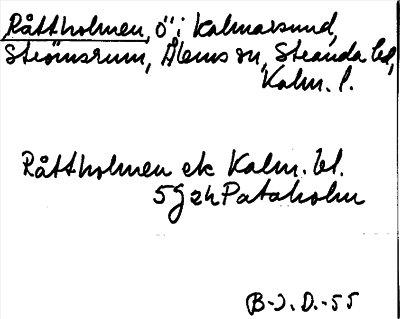 Råttholmen, ö i Kalmarsund,
Strömsrum, Ålems sn, Stranda hd,
Kalm. l.
Råttholmen ek Kalm. bl.
5G2h Pataholm
B-J. D. -55